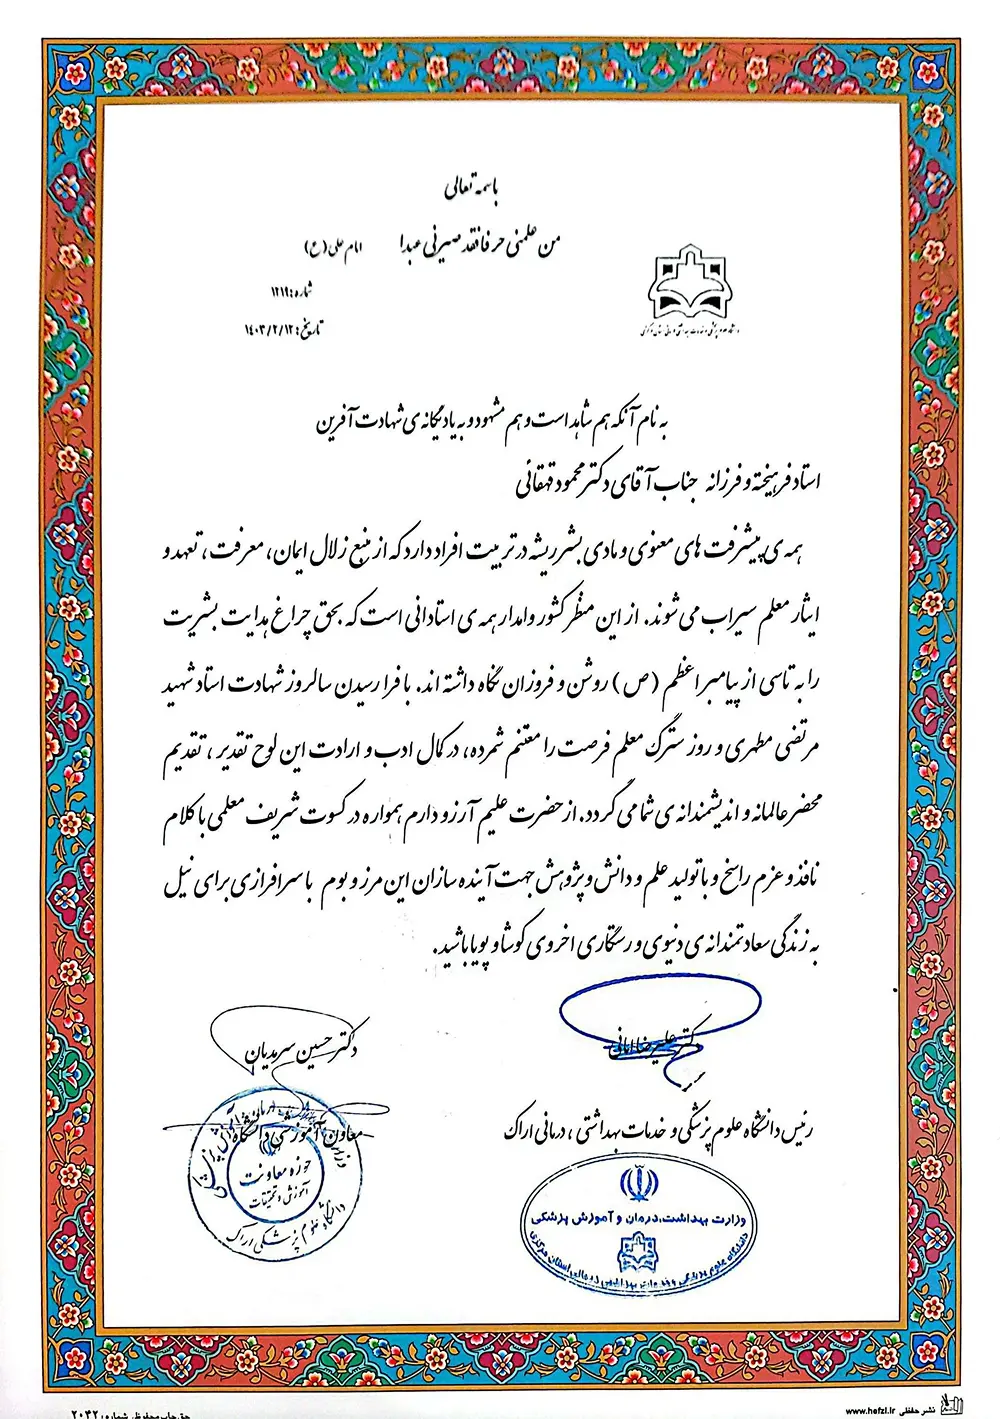 باسمه تعالی
من علمنی حرفا فقد صیرنی عبدا امام علی (ع)
شماره: ۱۲۱۹
تاریخ: ۱۴۰۳/۲/۱۲
به نام آنکه هم شاهد است و هم مشهود و به یاد یگانه ی شهادت آفرین
استاد فرهیخته و فرزانه جناب آقای دکتر محمود قهقائی
همه ی پیشرفت های معنوی و مادی بشر ریشه در تربیت افراد دارد که از منبع زلال ایمان، معرفت، تعهد و
ایثار معلم سیراب می شوند. از این منظر کشور وامدار همه ی استادانی است که بحق چراغ هدایت بشریت
را به تاسی از پیامبر اعظم (ص) روشن و فروزان نگاه داشته اند. با فرا رسیدن سالروز شهادت استاد شهید
مرتضی مطهری و روز سترگ معلم فرصت را مغتنم شمرده، در کمال ادب و ارادت این لوح تقدیر، تقدیم
محضر عالمانه و اندیشمندانه ی شما می گردد. از حضرت علیم آرزو دارم همواره در کسوت شریف معلمی با کلام
نافذ و عزم راسخ و با تولید علم و دانش و پژوهش جهت آینده سازان این مرز و بوم با سرافرازی برای نیل
به زندگی سعادتمندانه ی دنیوی و رستگاری اخروی کوشا و پویا باشید.
دکتر علیرضا امانی
رئیس دانشگاه علوم پزشکی و خدمات بهداشتی، درمانی اراک
وزارت بهداشت، درمان و آموزش پزشکی
دانشگاه علوم پزشکی و خدمات بهداشتی درمانی استان مرکزی
دکتر حسین سرمدیان
معاون آموزشی دانشگاه
حوزه معاونت
آموزش و تحقیقات
دانشگاه علوم پزشکی اراک
نشر حفظی www.hefzi.ir
حق چاپ محفوظ، شماره: ۲۰۳۲